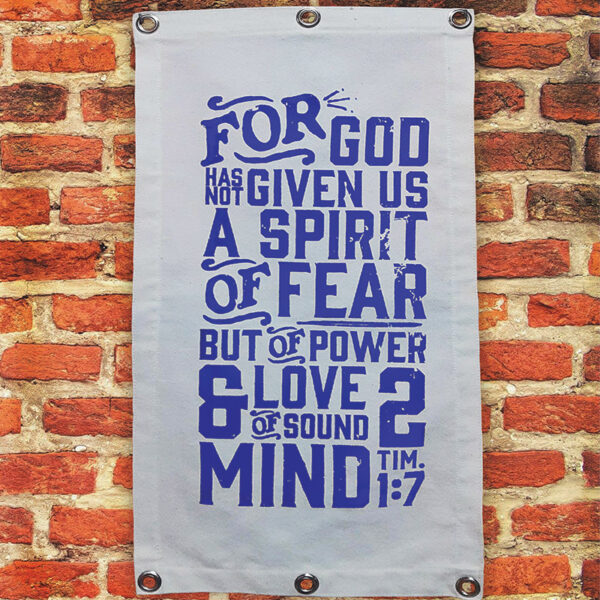 FOR GOD
HAS NOT GIVEN US
A SPIRIT
OF FEAR
BUT OF POWER
& LOVE
OF SOUND
MIND
2
TIM.
1:7